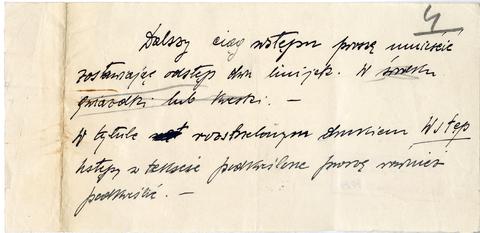 4
Dalszy ciąg wstępu proszę umieścić
zostawiając odstęp dwu linijek. W środku
gwiazdki lub kreski. —
W tytule rozstrzelonym drukiem Wstęp
ustępy w tekście podkreślone proszę również
podkreślić. —